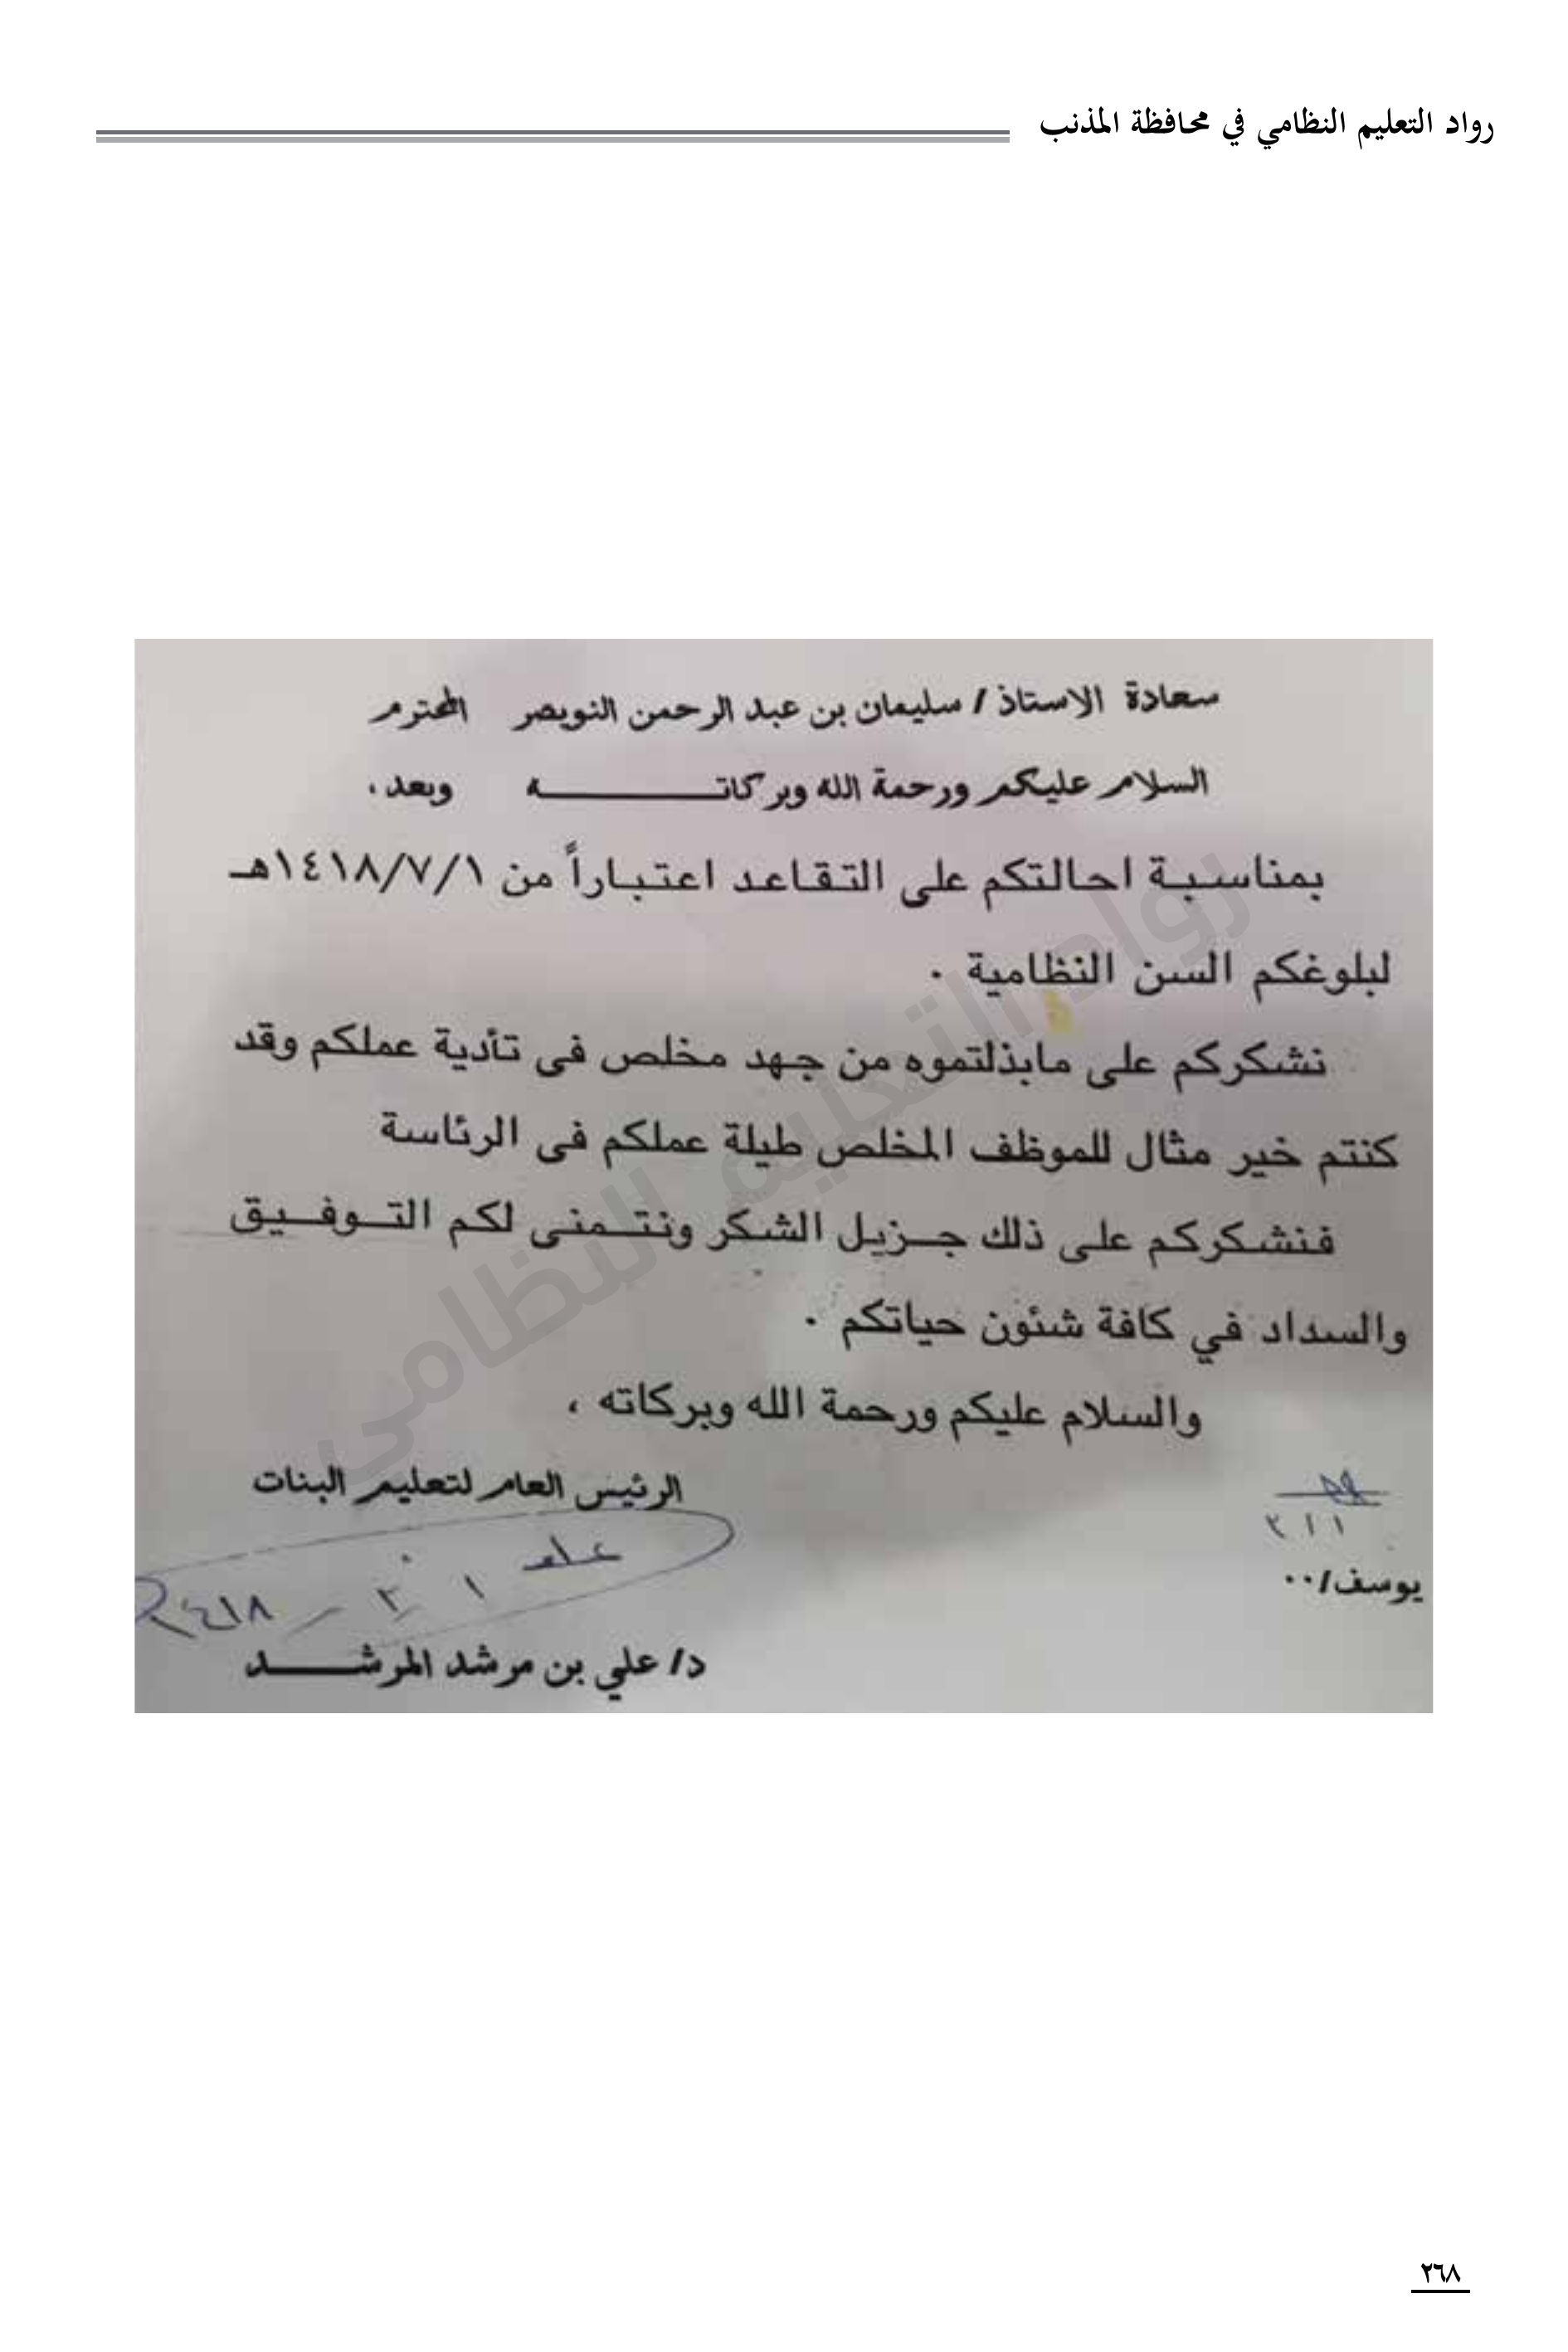 رواد التعليم النظامي في محافظة المذنب
سعادة الاستاذ / سليمان بن عبد الرحمن النويصر المحترم
السلام عليكم ورحمة الله وبركاتـــــــــه وبعد ،
بمناسبة احالتكم على التقاعد اعتباراً من ١٤١٨/٧/١هـ
لبلوغكم السن النظامية .
نشكركم على مابذلتموه من جهد مخلص فى تأدية عملكم وقد
كنتم خير مثال للموظف المخلص طيلة عملكم فى الرئاسة
فنشكركم على ذلك جزيل الشكر ونتمنى لكم التوفيق
والسداد في كافة شئون حياتكم .
والسلام عليكم ورحمة الله وبركاته ،
الرئيس العام لتعليم البنات
يوسف/٠٠
د/ علي بن مرشد المرشـــــد
رواد التعليم النظامي
٢٦٨